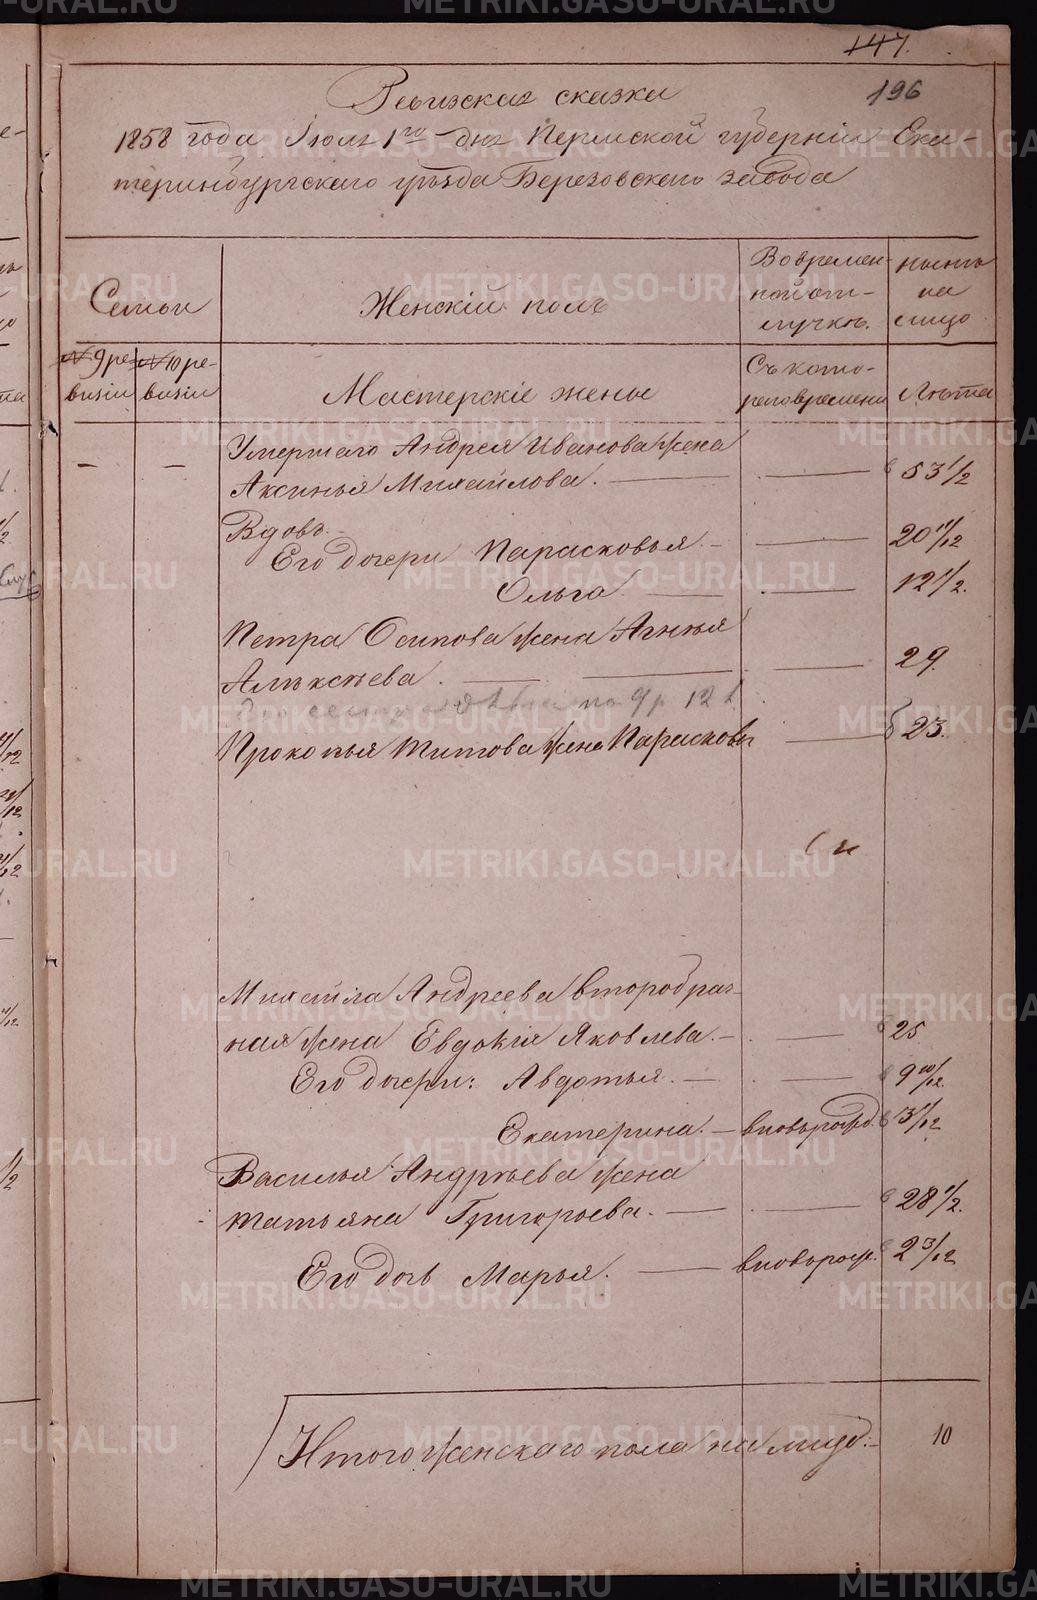 147.
196
Ревизская сказка
1858 года Июля 1го дня Пермской губернiи Ека-
теринбургскаго уѣзда Березовскаго завода
Семьи
Женскiй полъ
Во времен-
ной от-
лучкѣ.
нынѣ
на
лицо
№ 9 ре-
визiи
№ 10 ре-
визiи
Мастерскiе жены
Съ кото-
раго времени
Лѣта
Умершаго Андрея Иванова жена
Аксинья Михайлова. 53 1/2
Вдовъ.
Его дочери Парасковья 20 11/12
Ольга 12 1/2.
Петра Осипова жена Агнья
Алѣксѣева. 29.
по 9 р 12 л
Прокопья Титова жена Парасковья 23.
Михаила Андреева второбрач-
ная жена Евдокiя Яковлева. 25
Его дочери: Авдотья. 9 10/12.
Екатерина. вновьрожд. 3 1/12
Василья Андрѣева жена
татьяна Григорьева. 28 1/2.
Его дочь Марья. вновьрож. 2 3/12
Итого женскаго пола на лицо: 10
METRIKI.GASO-URAL.RU